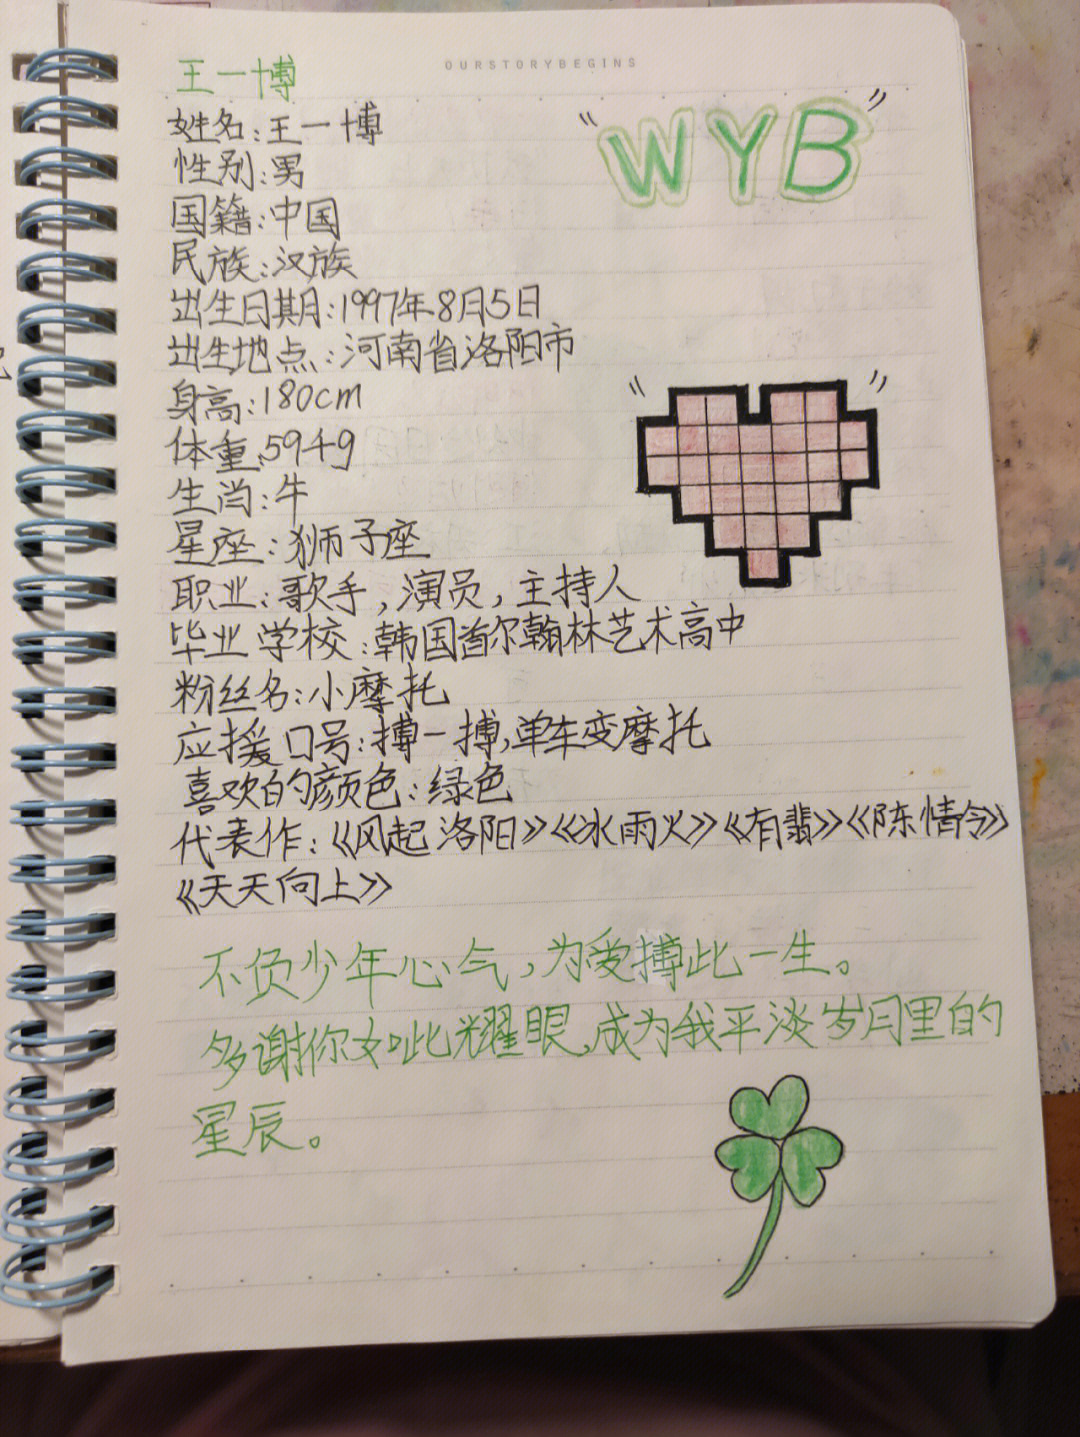 OURSTORYBEGINS
王一博
"WYB"
姓名:王一博
性别:男
国籍:中国
民族:汉族
出生日期:1997年8月5日
出生地点:河南省洛阳市
身高:180cm
体重:59kg
生肖:牛
星座:狮子座
职业:歌手,演员,主持人
毕业学校:韩国首尔翰林艺术高中
粉丝名:小摩托
应援口号:搏一搏,单车变摩托
喜欢的颜色:绿色
代表作:《风起洛阳》《冰雨火》《有翡》《陈情令》
《天天向上》
不负少年心气,为爱搏此一生。
多谢你如此耀眼,成为我平淡岁月里的
星辰。